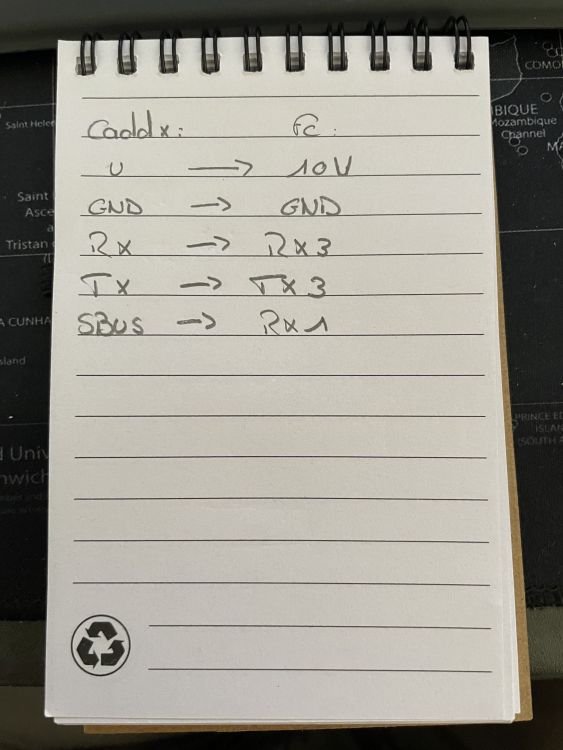 Caddx: FC:
V → 10V
GND → GND
Rx → Rx3
Tx → Tx3
SBUS → Rx1
Saint Hele
Saint
Asce
a
Tristan
A CUNHA
sland
d Univ
nwich
COMO
BIQUE
Mozambique
Channel
MA
PRINCE ED
ISLAN
(SOUTH A